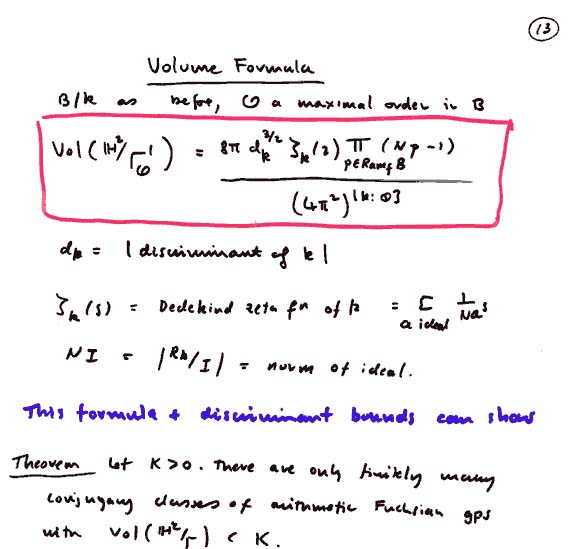 13
Volume Formula
B/k as before, O a maximal order in B
Vol(H²/Γ_O^1) = 8π d_k^{3/2} ζ_k(2) ∏_{p∈Ram_f B} (Np - 1) / (4π²)^{[k:Q]}
d_k = |discriminant of k|
ζ_k(s) = Dedekind zeta fn of k = Σ_{a ideal} 1/Na^s
NI = |R_k/I| = norm of ideal.
This formula + discriminant bounds can show
Theorem Let K>0. There are only finitely many
conjugacy classes of arithmetic Fuchsian gps
with Vol(H²/Γ) < K.